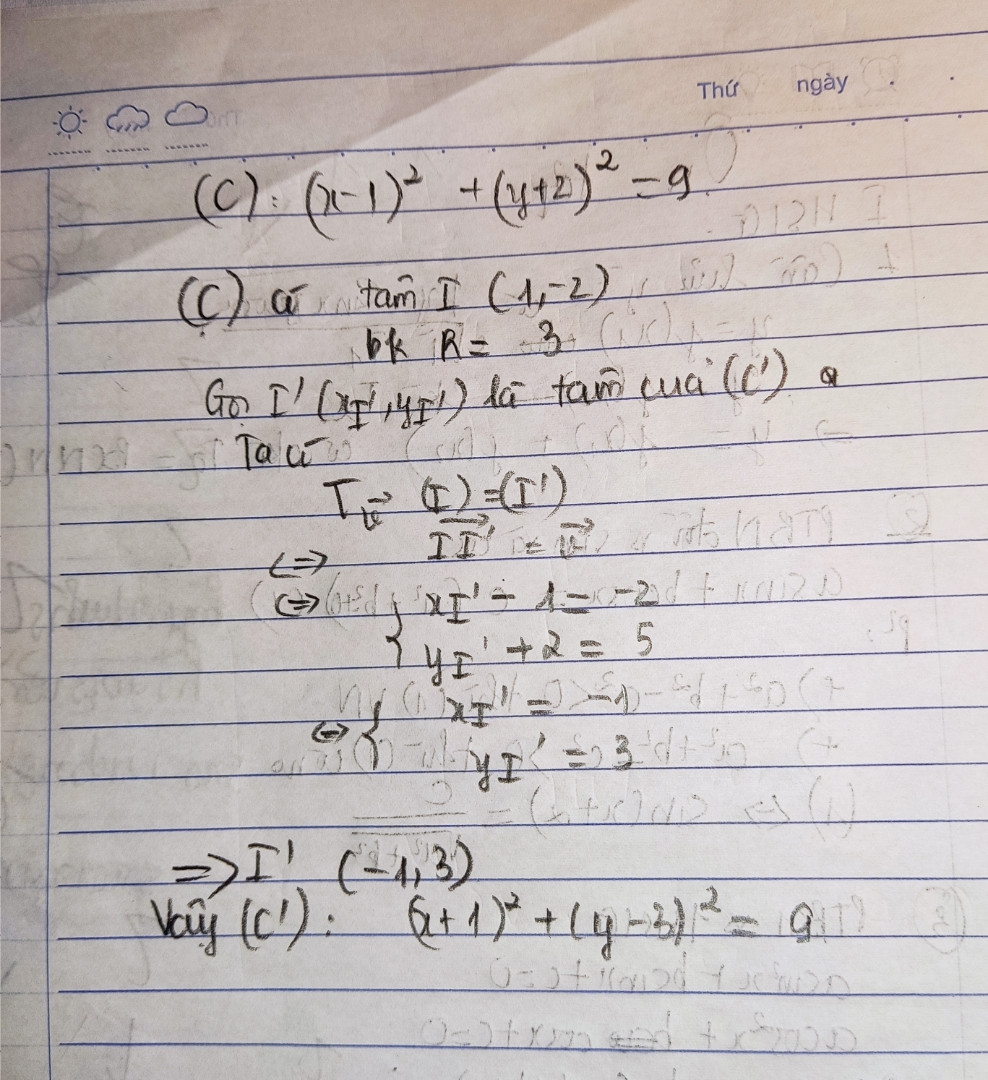 Thứ ngày
(C): (x-1)² + (y+2)² = 9.
(C) có tâm I (1,-2)
bk R = 3
Gọi I' (xI', yI') là tâm của (C')
Ta có
Tv→ (I) = (I')
<=> II'→ = v→
<=> { xI' - 1 = -2
yI' + 2 = 5
<=> { xI' = -1
yI' = 3
=> I' (-1,3)
Vậy (C'): (x+1)² + (y-3)² = 9